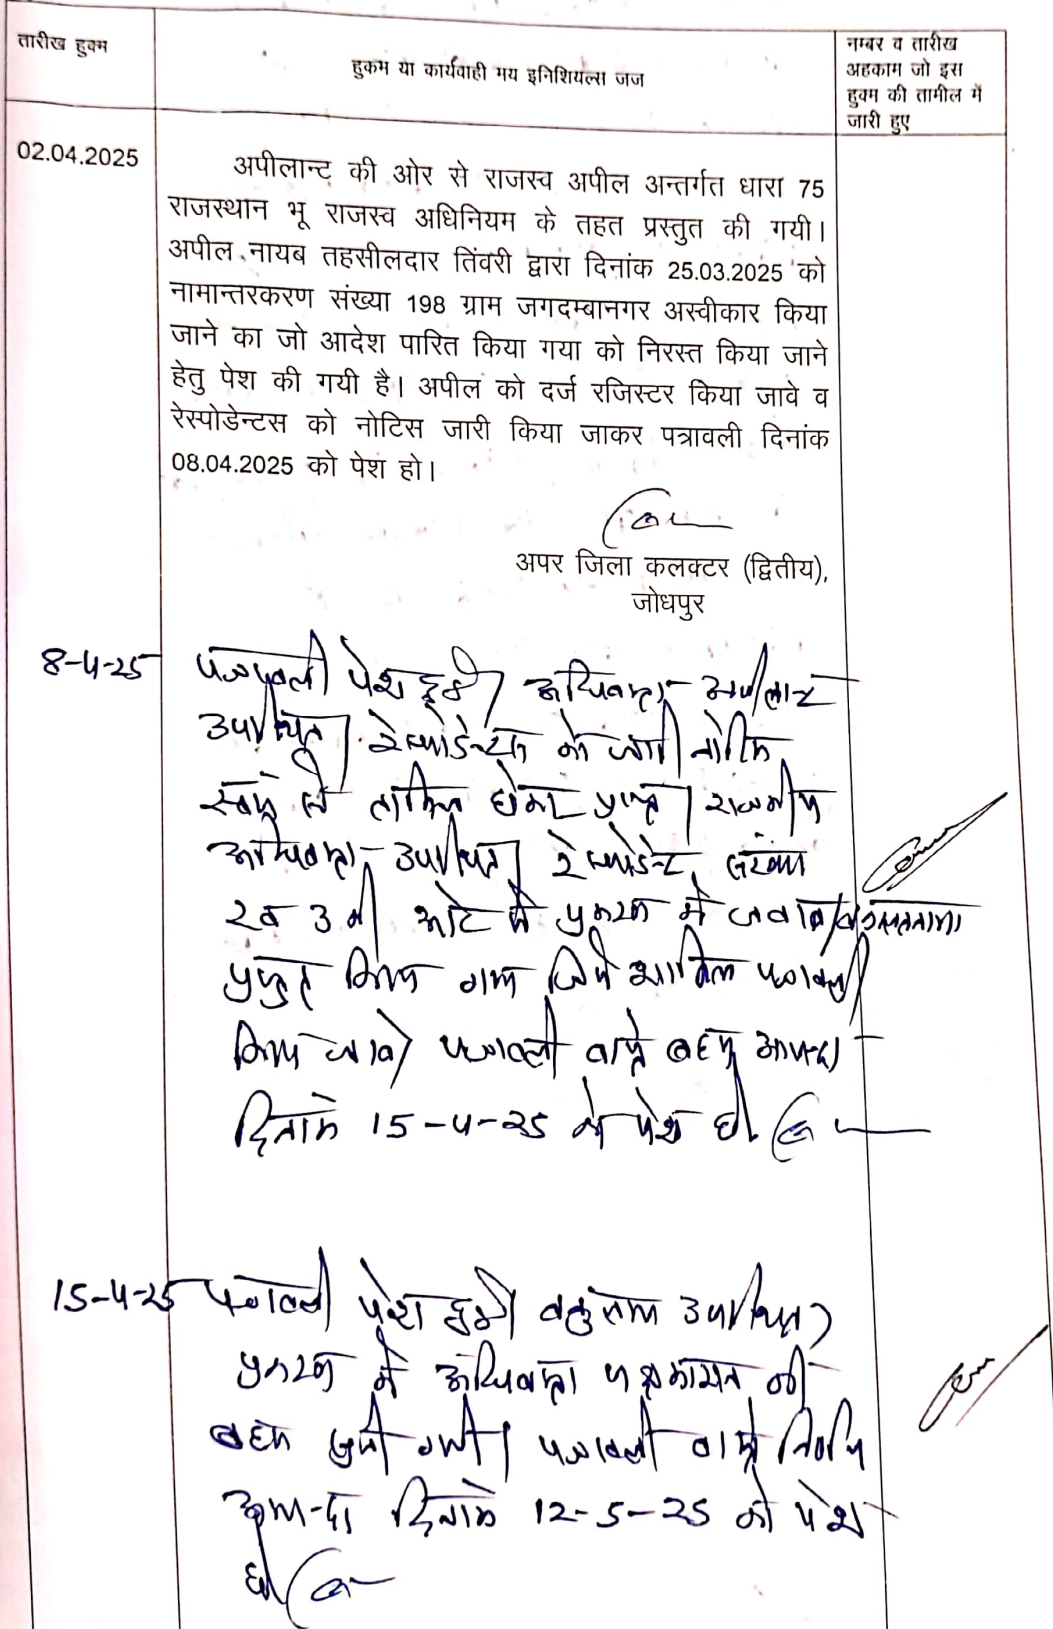 तारीख हुक्म
हुकम या कार्यवाही मय इनिशियल्स जज
नम्बर व तारीख
अहकाम जो इस
हुक्म की तामील में
जारी हुए
02.04.2025
अपीलान्ट की ओर से राजस्व अपील अन्तर्गत धारा 75
राजस्थान भू राजस्व अधिनियम के तहत प्रस्तुत की गयी।
अपील नायब तहसीलदार तिंवरी द्वारा दिनांक 25.03.2025 को
नामान्तरकरण संख्या 198 ग्राम जगदम्बानगर अस्वीकार किया
जाने का जो आदेश पारित किया गया को निरस्त किया जाने
हेतु पेश की गयी है। अपील को दर्ज रजिस्टर किया जावे व
रेस्पोडेन्टस को नोटिस जारी किया जाकर पत्रावली दिनांक
08.04.2025 को पेश हो।
अपर जिला कलक्टर (द्वितीय),
जोधपुर
8-4-25 पत्रावली पेश हुई। अधिवक्ता अपीलान्ट
उपस्थित। रेस्पोडेन्टस को जारी नोटिस
तामिल होकर प्राप्त। राजकीय
अधिवक्ता उपस्थित। रेस्पोडेन्ट संख्या
2 व 3 की ओर से प्रकरण में जवाब/वकालतनामा
प्रस्तुत किया गया जिसे शामिल पत्रावली
किया जावे। पत्रावली वास्ते बहस आयन्दा
दिनांक 15-4-25 को पेश हो।
15-4-25 पत्रावली पेश हुई। वकुलाय उपस्थित।
प्रकरण में अधिवक्ता पक्षकारान की
बहस सुनी गयी। पत्रावली वास्ते निर्णय
आयन्दा दिनांक 12-5-25 को पेश
हो।